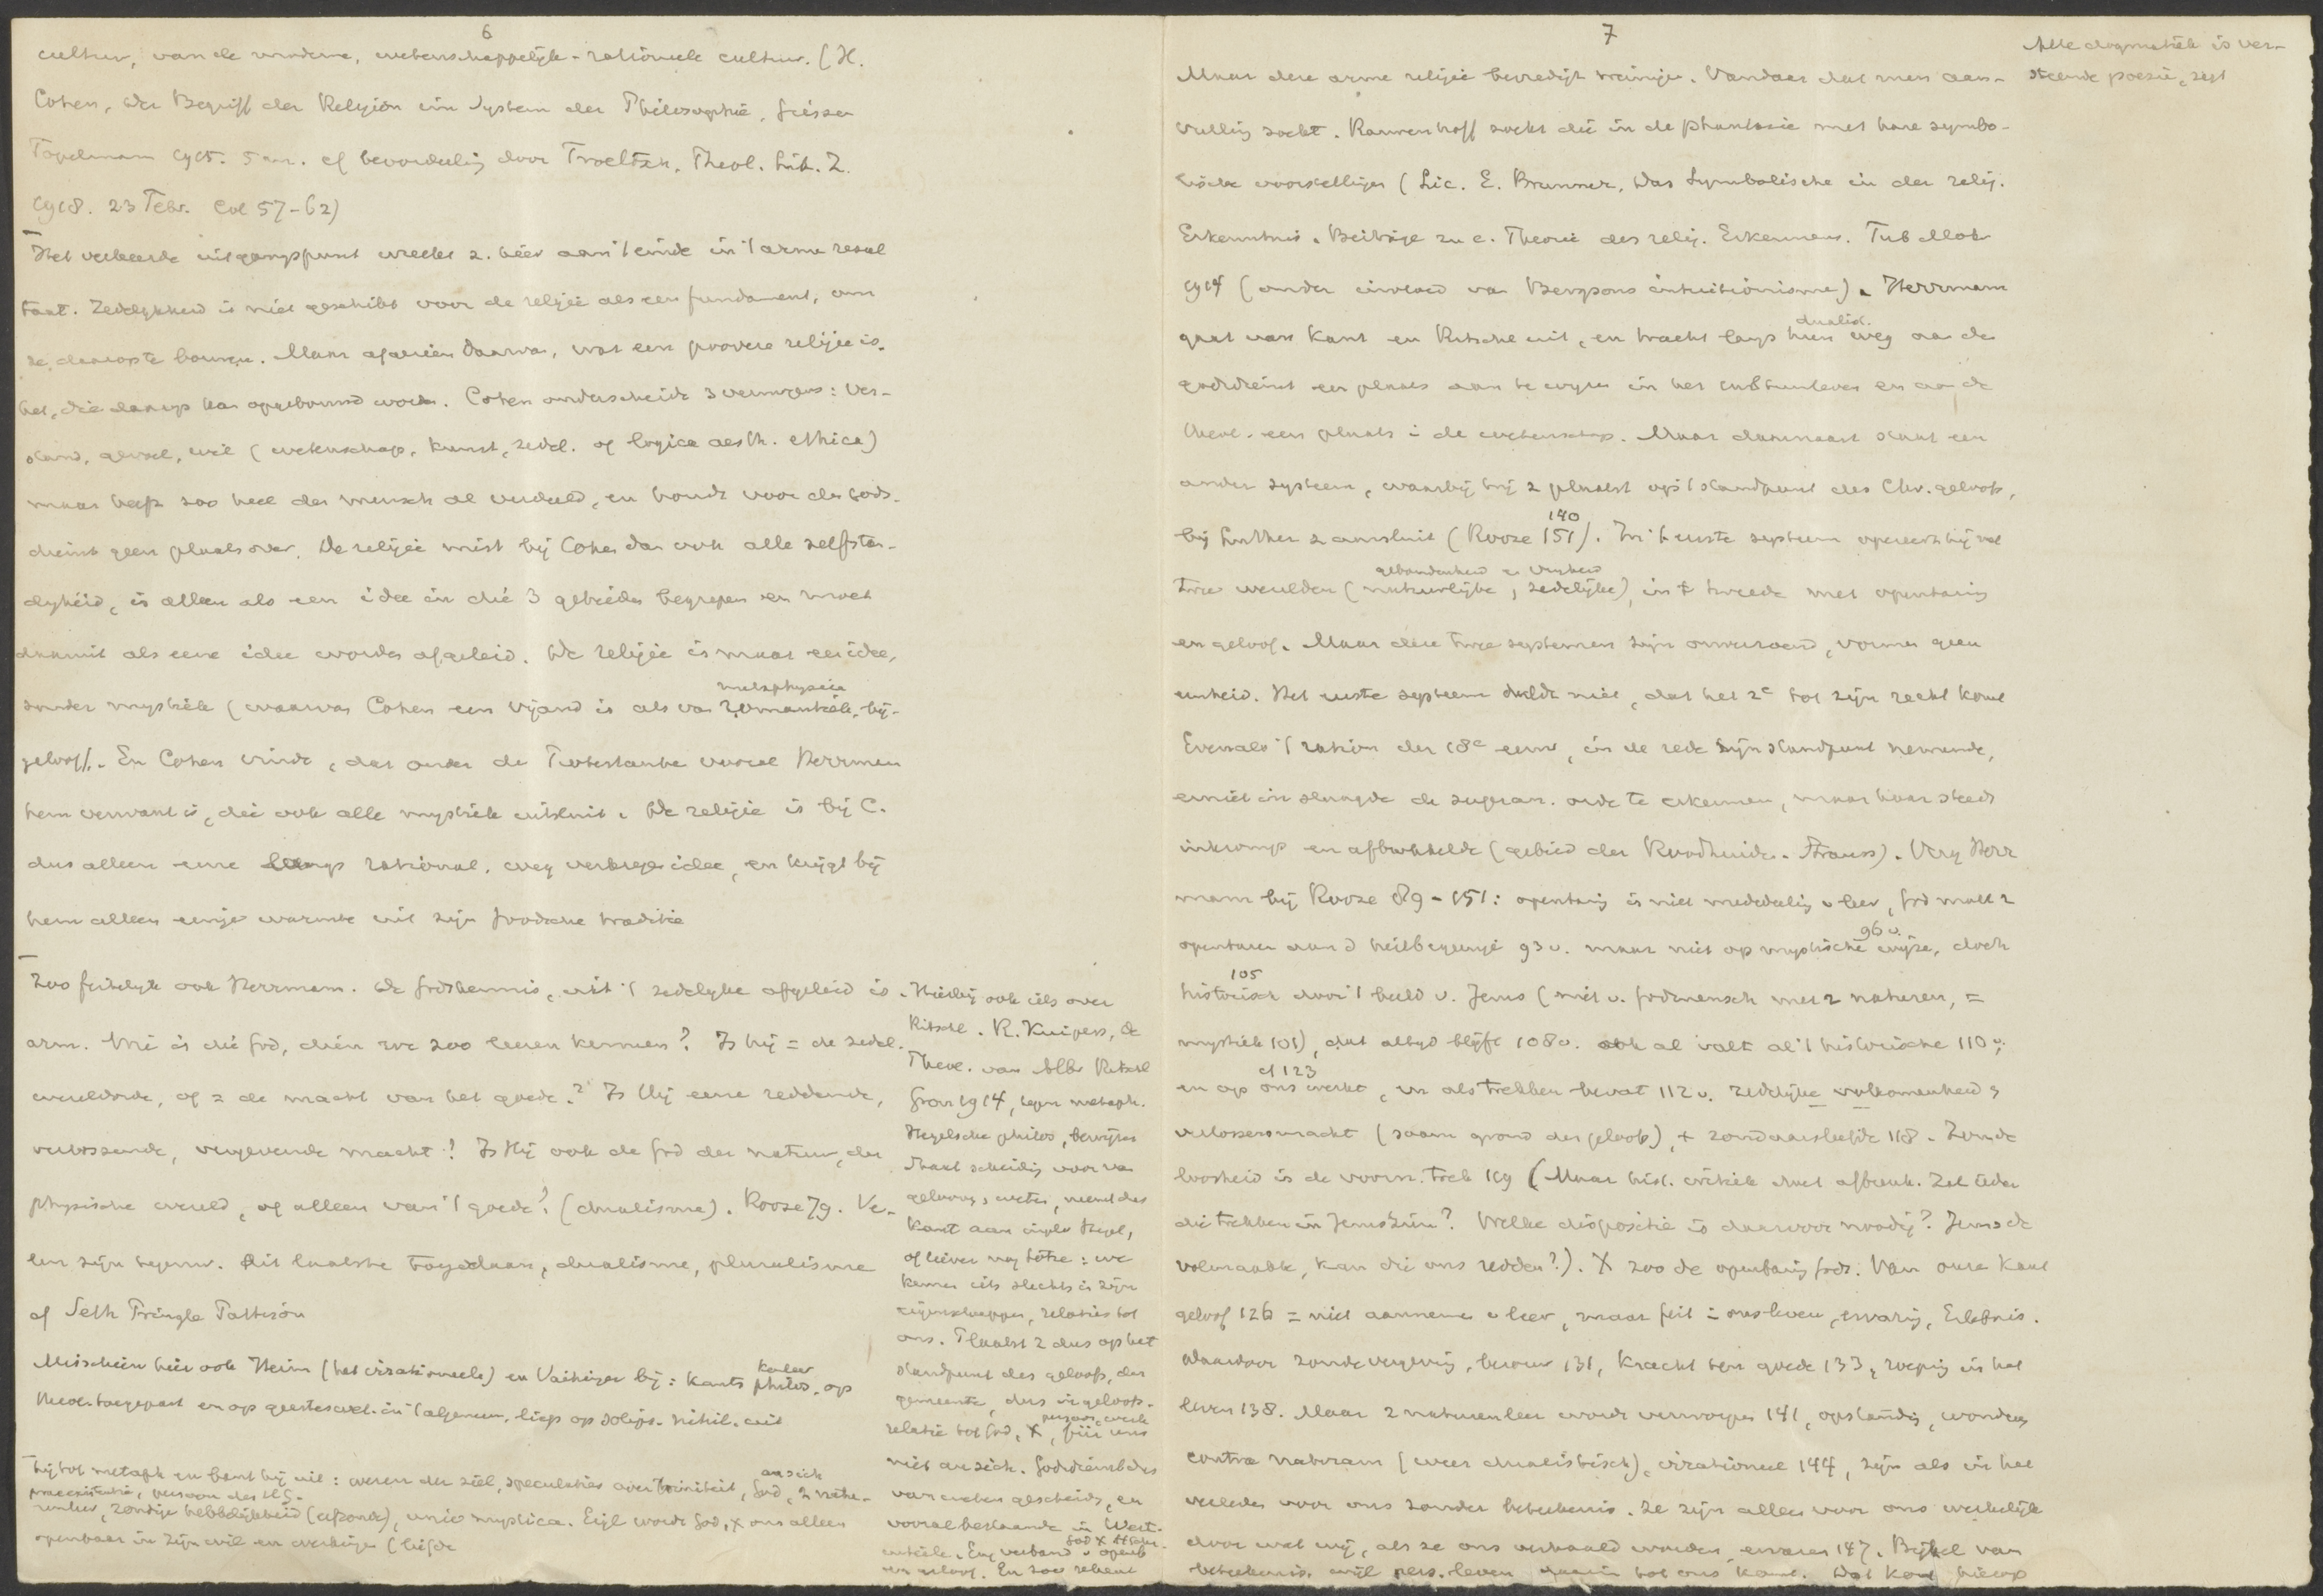 6
cultuur, van de moderne, wetenschappelijk-rationeele cultuur. (H.
Cohen, Der Begriff der Religion im System der Philosophie, Giessen
Töpelmann 1915. 5 m. cf beoordeling door Troeltsch, Theol. Lit. Z.
1918. 23 Febr. Col 57-62)
Het verkeerde uitgangspunt wreekt z. hier aan 't einde in 't arme resul
taat. Zedelijkheid is niet geschikt voor de religie als een fundament, om
ze daarop te bouwen. Maar afgezien daarvan, wat een poovere religie is
het, die daarop kan opgebouwd worden. Cohen onderscheidt 3 vermogens: ver-
stand, gevoel, wil (wetenschap, kunst, zedel. of logica aesth. ethica)
maar heeft zoo heel den mensch al verdeeld, en houdt voor den gods-
dienst geen plaats over. De religie mist bij Cohen dan ook alle zelfstan-
digheid, is alleen als een idee in die 3 gebieden begrepen en moet
daaruit als eene idee worden afgeleid. De religie is maar een idee,
zonder mystiek (waarvan Cohen een vijand is als van metaphysica romantiek, bij-
geloof). En Cohen vindt, dat onder de Protestanten vooral Herrmann
hem verwant is, die ook alle mystiek uitsluit. De religie is bij C.
dus alleen eene langs rational. weg verkregen idee, en krijgt bij
hem alleen eenige warmte uit zijn Joodsche traditie
Zoo feitelijk ook Herrmann. De godskennis, uit 't zedelijke afgeleid is
arm. Wie is die God, dien we zoo leeren kennen? Is hij = de zedel.
wereldorde, of = de macht van het goede? Is Hij eene reddende,
verlossende, vergevende macht? Is Hij ook de God der natuur, der
physische wereld, of alleen van 't goede? (dualisme). Rooze 79. Ve-
len zijn tegenw. dit laatste toegedaan, dualisme, pluralisme
cf Seth Pringle Pattison
Misschien hier ook Heim (het irrationeele) en Vaihinger bij: Kants philos. op
theol. toegepast en op geesteswet. in 't algemeen, liep op solips. nihil. uit
Hierbij ook iets over
Ritschl. R. Kuipers, de
Theol. van Albr Ritschl
Gron 1914, tegen metaph.
Hegelsche philos, bewijzen
Maakt scheiding voor van
gelooven, weten, neemt dus
Kant aan contra Hegel,
of liever nog Lotze: we
kennen iets slechts in zijn
eigenschappen, relaties tot
ons. Plaatst z dus op het
standpunt des geloofs, der
gemeente, dus in geloofs-
relatie tot God, X, persoon, werk für uns
niet an sich. Godsdienst dus
van weten gescheiden, en
vooral bestaande in Wert-
urteile. Eng verband v openb
en geloof. En zoo rekent
hij tot metaph en bant hij uit: wezen der ziel, speculaties over triniteit, God an sich, 2 natu-
praeexistentie, persoon des H G.
renleer, zondige hebbelijkheid (erfzonde), unio mystica. Eigl wordt God, X ons alleen
openbaar in zijn wil en werkingen (liefde
7
Maar deze arme religie bevredigt weinigen. Vandaar dat men aan-
vulling zoekt. Rauwenhoff zocht die in de phantasie met hare symbo-
lische voorstellingen (Lic. E. Brunner, Das Symbolische in der relig.
Erkenntnis. Beiträge zu e. Theorie des relig. Erkennens. Tub Mohr
1914 (onder invloed van Bergsons intuitionisme). Herrmann
gaat van Kant en Ritschl uit, en tracht langs hun dualist. weg aan de
godsdienst een plaats aan te wijzen in het cultuurleven en aan de
theol. een plaats in de wetenschap. Maar daarnaast staat een
ander systeem, waarbij hij z plaatst op 't standpunt des Chr. geloofs,
bij Luther z aansluit (Rooze 140 151). In 't eerste systeem opereert hij met
gebondenheid en vrijheid
twee werelden (natuurlijke, zedelijke), in 't tweede met openbaring
en geloof. Maar deze twee systemen zijn onverzoend, vormen geen
eenheid. Het eerste systeem duldt niet, dat het 2e tot zijn recht komt
Evenals 't ration der 18e eeuw, in de rede zijn standpunt nemende,
er niet in slaagde de supran. orde te erkennen, maar haar steeds
inkromp en afbrokkelde (gebied der Roodhuiden. Strauss). Verg Herr
mann bij Rooze 89-151: openbaring is niet mededeeling v leer, God maakt z
openbaar aan d heilbegeerige 93 v. maar niet op mystische wijze 96 v., doch
historisch 105 door 't beeld v. Jezus (niet v. godmensch met 2 naturen, =
mystiek 101), dat altijd blijft 108 v. ook al valt al 't historische 110 v.
en op ons werkt cf 123, en als trekken bevat 112 v. zedelijke volkomenheid,
verlossersmacht (saam grond des geloofs), + zondaarsliefde 118. Zonde
loosheid is de voorn. trek 119 (Maar hist. critiek doet afbreuk. Zal ieder
die trekken in Jezus zien? Welke dispositie is daarvoor noodig? Jezus de
volmaakte, kan die ons redden?). X zoo de openbaring Gods. Van onze kant
geloof 126 = niet aannemen v leer, maar feit in ons leven, ervaring, Erlebnis.
Waardoor zondevergeving, berouw 131, kracht ten goede 133, roeping in het
leven 138. Maar 2 naturenleer wordt verworpen 141, opstanding, wonderen
contra naturam (weer dualistisch), irrationeel 144, zijn als in het
verleden voor ons zonder beteekenis. Ze zijn alleen voor ons werkelijk
door wat wij, als ze ons verhaald worden, ervaren 147. Bijbel van
beteekenis, wijl pers. leven daarin tot ons komt. Dat komt hierop
Alle dogmatiek is ver-
steende poezie, zegt